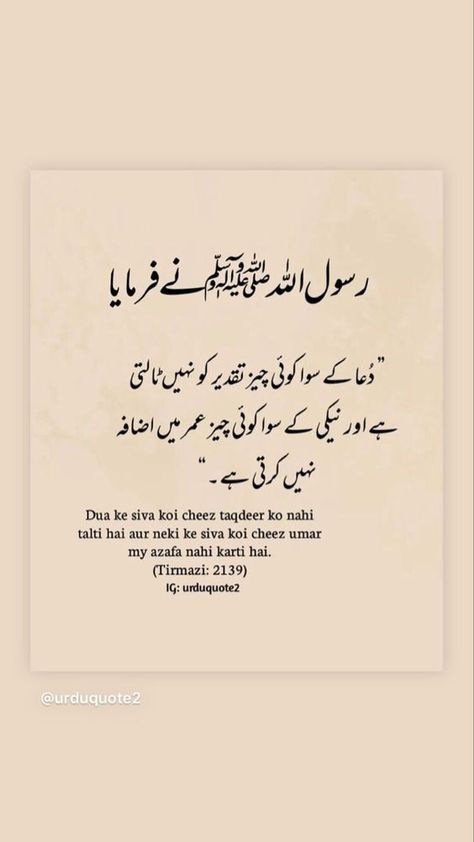 رسول اللہ ﷺ نے فرمایا
”دُعا کے سوا کوئی چیز تقدیر کو نہیں ٹالتی
ہے اور نیکی کے سوا کوئی چیز عمر میں اضافہ
نہیں کرتی ہے ۔“
Dua ke siva koi cheez taqdeer ko nahi
talti hai aur neki ke siva koi cheez umar
my azafa nahi karti hai.
(Tirmazi: 2139)
IG: urduquote2
@urduquote2